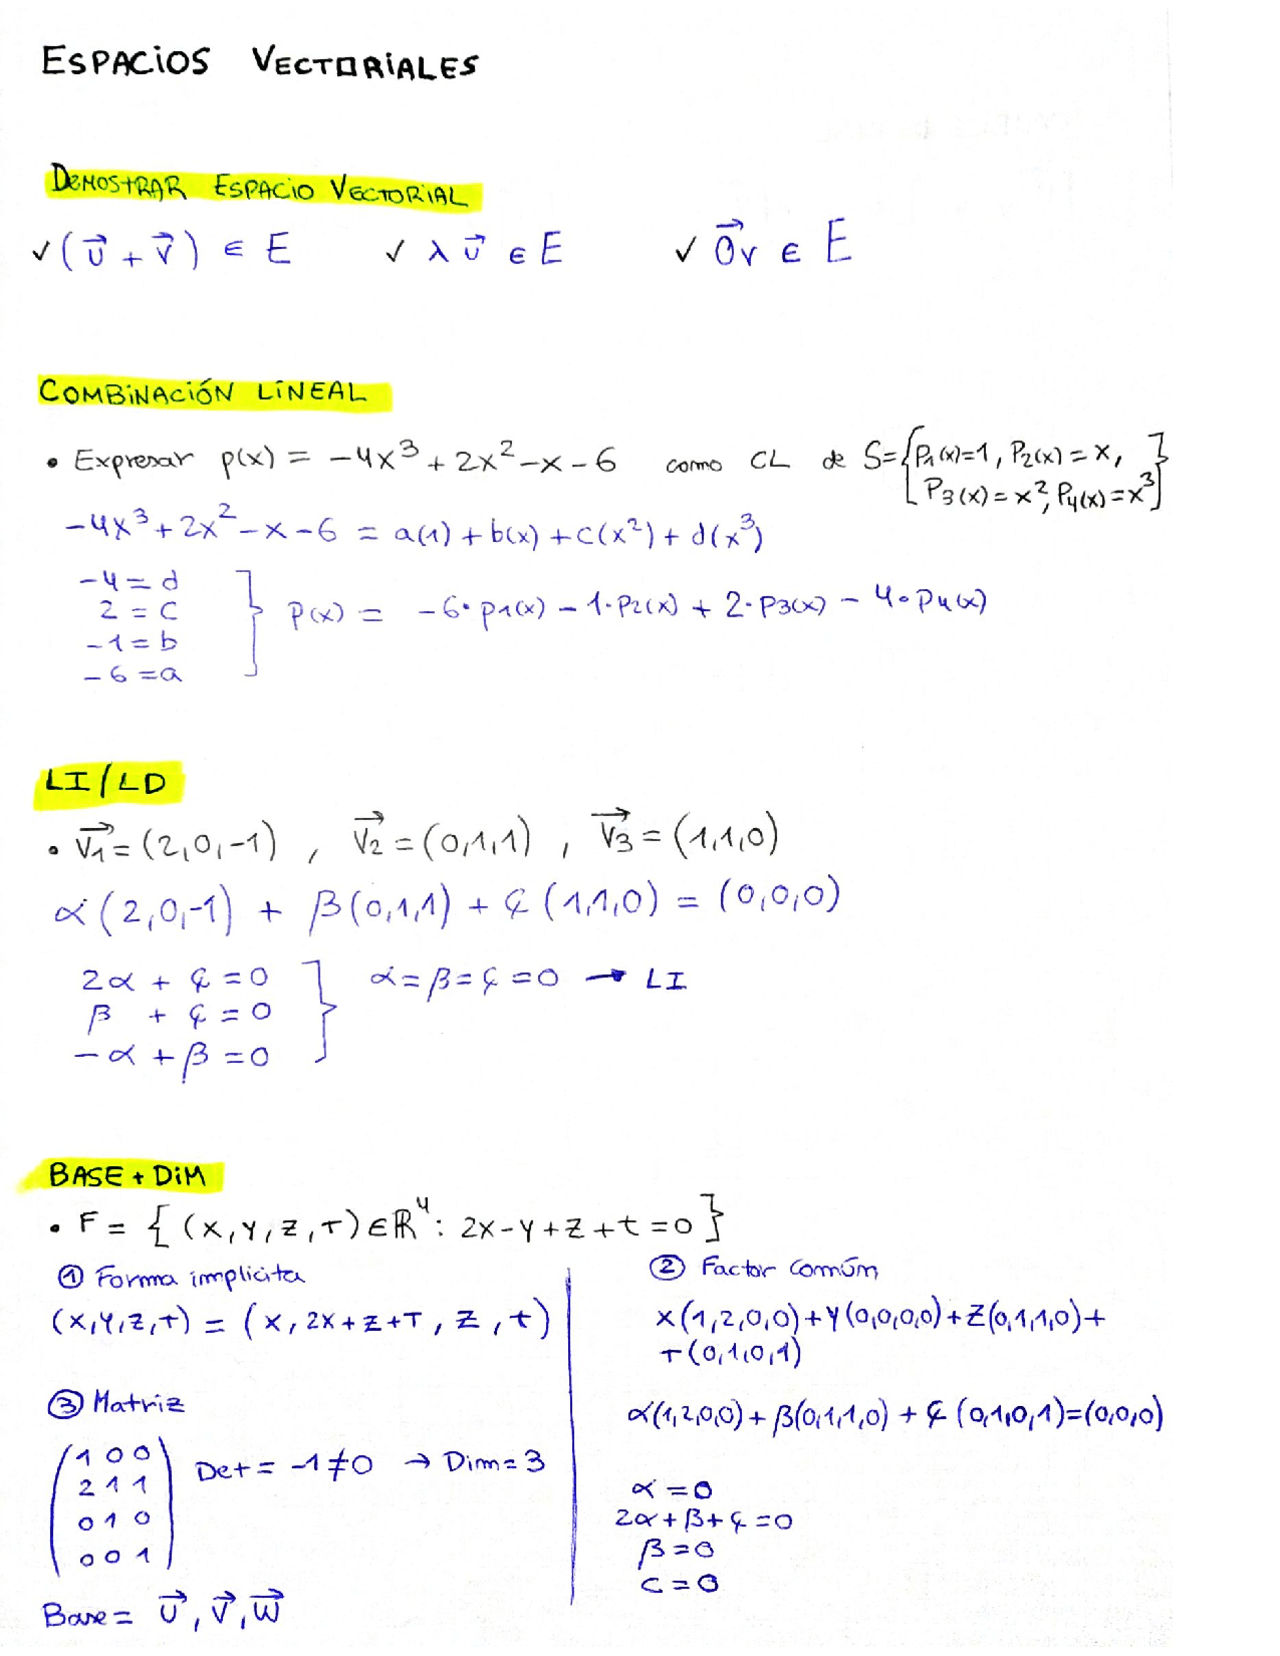 ESPACIOS VECTORIALES
DEMOSTRAR ESPACIO VECTORIAL
✓ (u⃗ + v⃗) ∈ E ✓ λ u⃗ ∈ E ✓ 0⃗v ∈ E
COMBINACIÓN LINEAL
• Expresar p(x) = -4x³ + 2x² - x - 6 como CL de S = {P₁(x)=1, P₂(x)=x,
P₃(x)=x², P₄(x)=x³}
-4x³ + 2x² - x - 6 = a(1) + b(x) + c(x²) + d(x³)
-4 = d
2 = c
-1 = b
-6 = a
} P(x) = -6·p₁(x) - 1·P₂(x) + 2·P₃(x) - 4·P₄(x)
LI/LD
• v₁⃗ = (2,0,-1) , v₂⃗ = (0,1,1) , v₃⃗ = (1,1,0)
α(2,0,-1) + β(0,1,1) + ȼ(1,1,0) = (0,0,0)
2α + ȼ = 0
β + ȼ = 0
-α + β = 0
} α = β = ȼ = 0 → LI
BASE + DIM
• F = { (x,y,z,t) ∈ ℝ⁴: 2x-y+z+t=0 }
① Forma implícita
(x,y,z,t) = (x, 2x+z+t, z, t)
② Factor común
x(1,2,0,0)+y(0,0,0,0)+z(0,1,1,0)+
t(0,1,0,1)
α(1,2,0,0)+β(0,1,1,0)+ȼ(0,1,0,1)=(0,0,0)
α = 0
2α+β+ȼ=0
β=0
c=0
③ Matriz
1 0 0
2 1 1
0 1 0
0 0 1
Det = -1≠0 → Dim=3
Base = u⃗, v⃗, w⃗